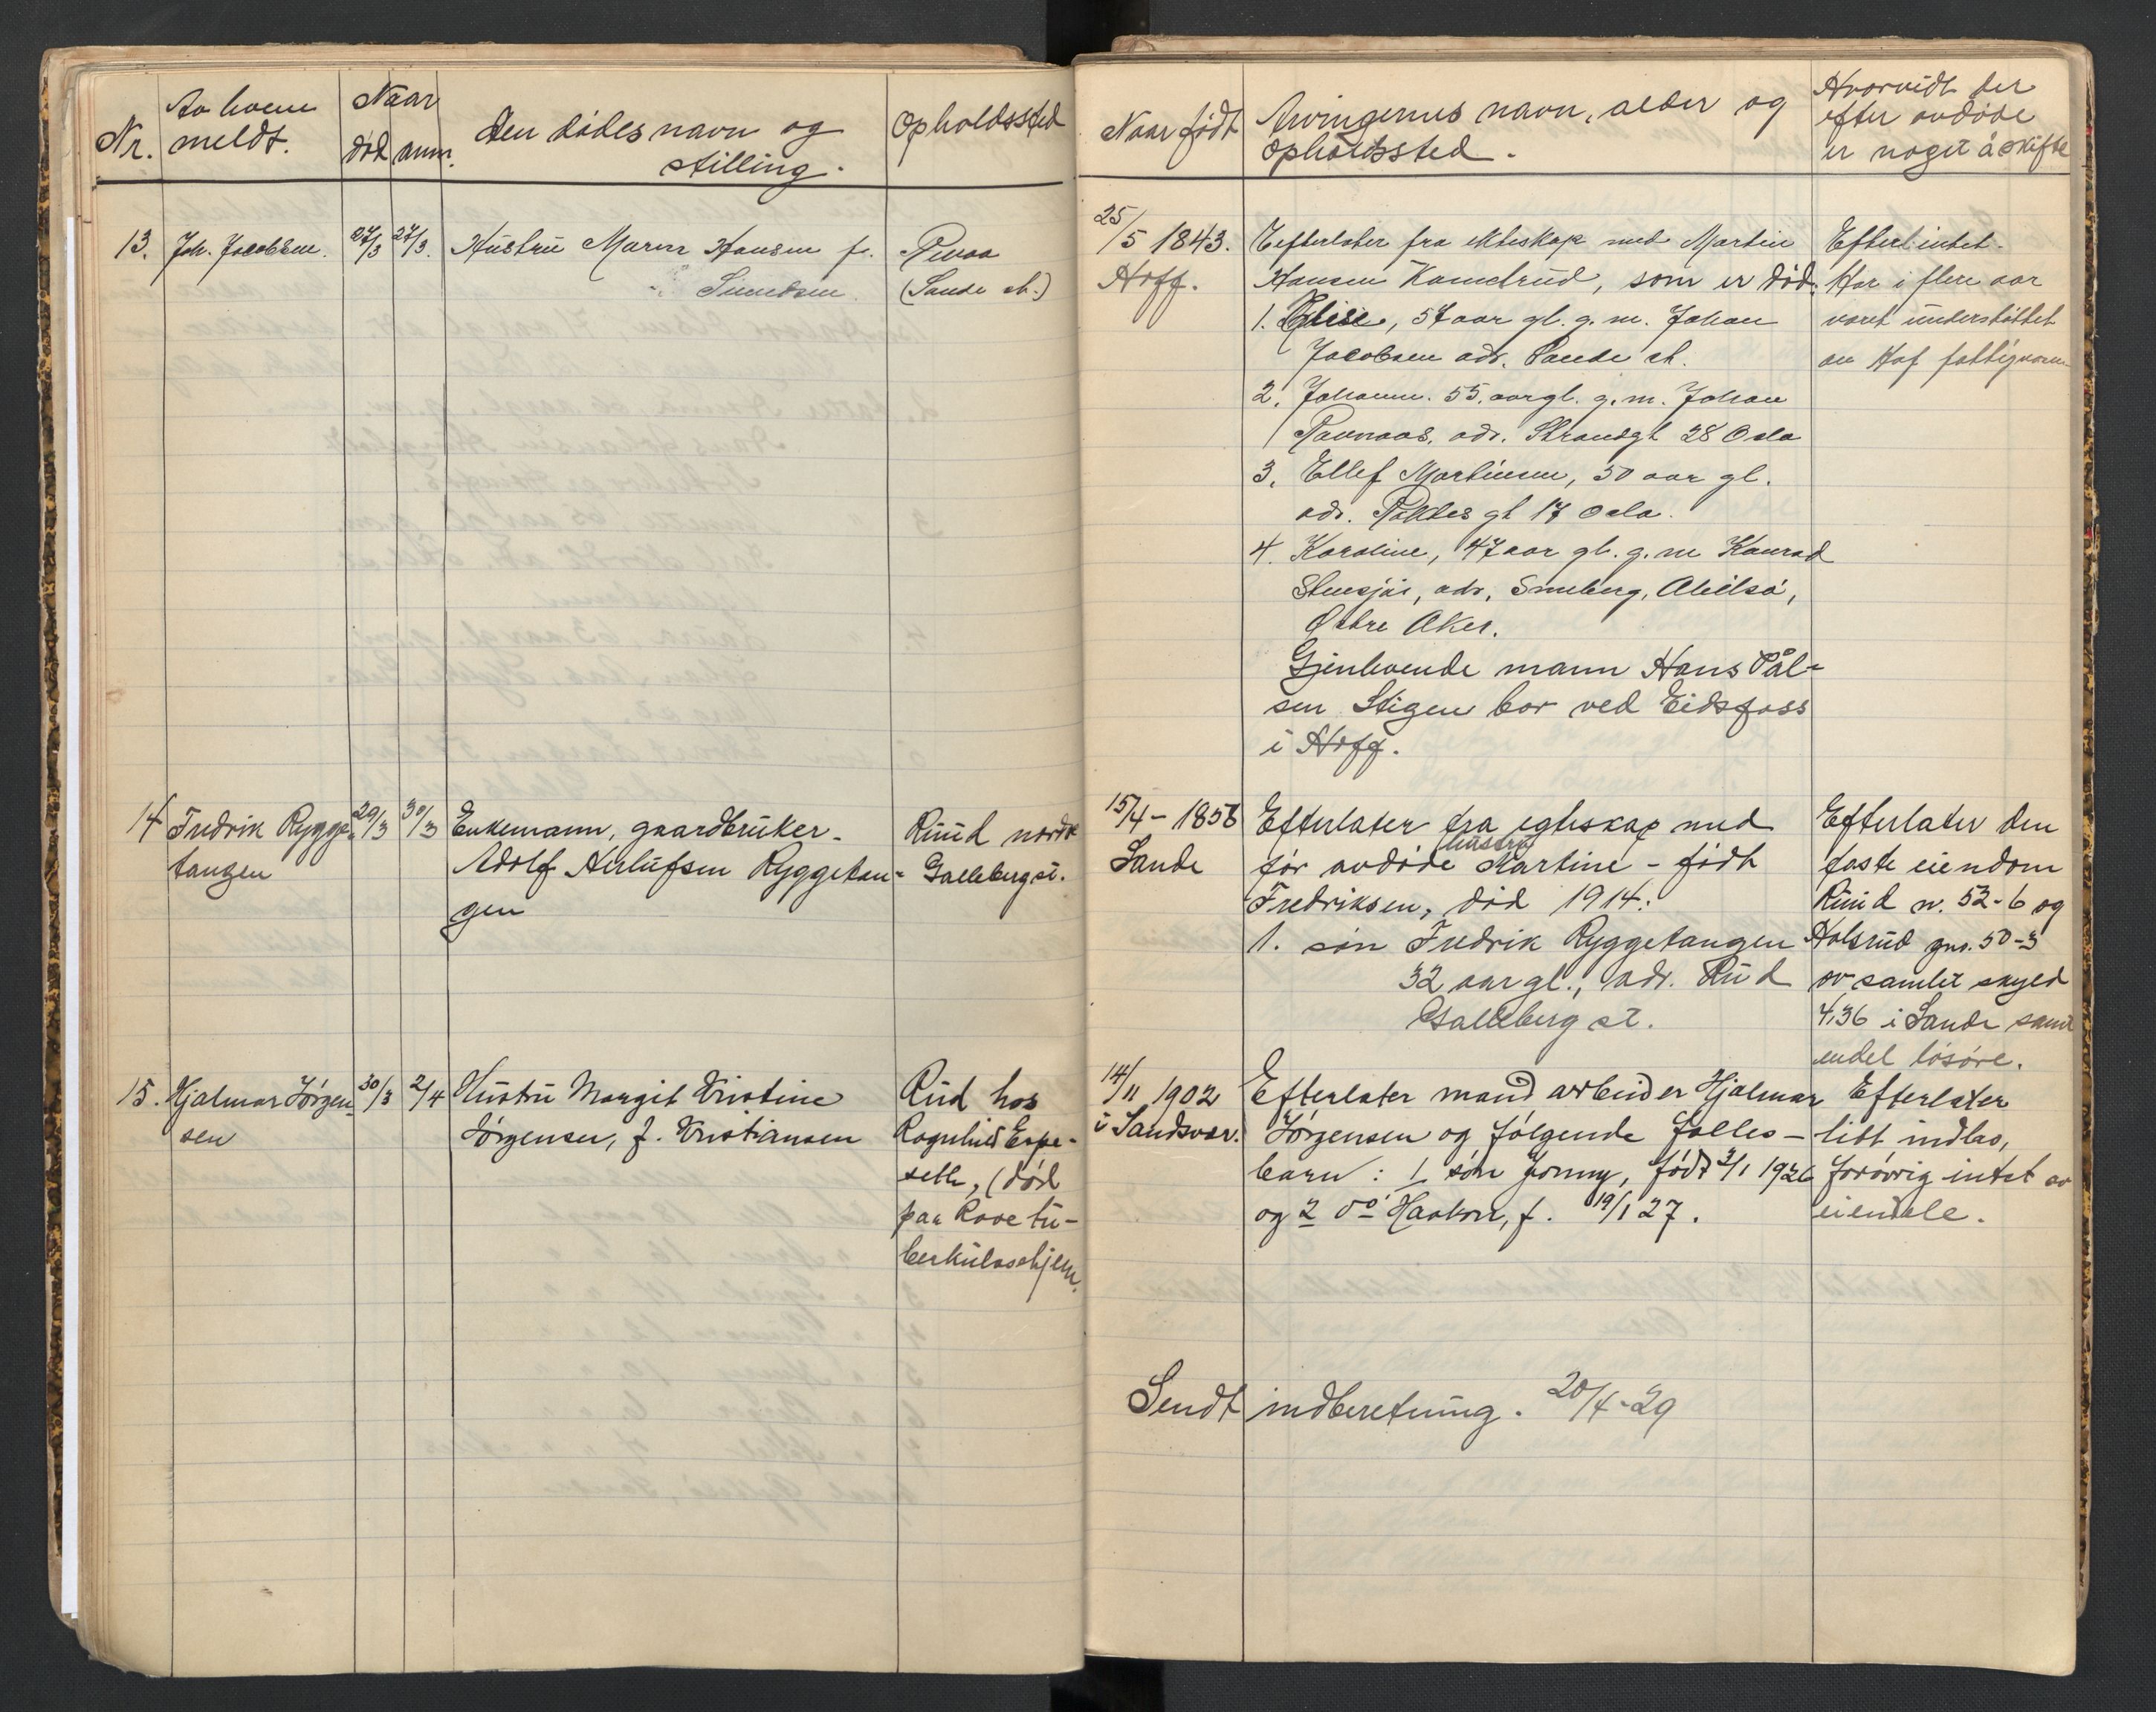 Nr.
Av hvem
meldt.
Naar
død anm.
Den dødes navn og
stilling.
Opholdssted
13.
Joh. Jacobsen.
27/3
27/3.
Hustru Maren Hansen f.
(Sande st.)
14
Fredrik Rygge-
tangen
29/3
30/3
Enkemann, gaardbruker
Adolf Herlufsen Ryggetan-
gen
Ruud nordre
Galleberg st.
15.
Hjalmar Jørgen-
sen
30/3
2/4
Hustru Margit Kristine
Jørgensen, f. Kristiansen
Rud hos
Ragnhild Espe-
seth, (död
paa Rove tu-
berkulosehjem.
Naar født
Arvingernes navn, alder og
opholdssted.
Hvorvidt der
efter avdøde
er noget å skifte
25/5 1843.
Hoff.
Efterlater fra ekteskap med Martin
Hansen Kamelrud, som er død:
1. Elise, 57 aar gl. g. m. Johan
Jacobsen adr. Sande st.
2. Johanne. 55. aar gl. g. m. Johan
Ravnaas, adr. Strandgt 28 Oslo
3. Ellef Martinsen, 50 aar gl.
adr. gt 17 Oslo.
4. Karoline, 47 aar gl. g. m Konrad
Stensjøi, adr. Smeberg, Abilsø,
Østre Aker.
Gjenlevende mann Hans Pål-
sen Stigen bor ved Eidsfoss
i Hoff.
Efterl. intet.
Har i flere aar
været understøttet
av Hof fattigvesen
15/4 - 1858
Sande
Efterlater fra egteskap med
før avdøde hustru Martine - født
Fredriksen, død 1914:
1. søn Fredrik Ryggetangen
32 aar gl., adr. Rud
Galleberg st.
Efterlater den
faste eiendom
Ruud n. 52-6 og
Holsrud gnr. 50-3
av samlet skyld
4,36 i Sande samt
endel løsøre.
14/11 1902
i Sandsvær.
Efterlater mand arbeider Hjalmar
Jørgensen og følgende fælles-
barn: 1 søn Jonny, født 3/1 1926
og 2 do Haakon, f. 19/1 27.
Efterlater
litt indbo,
forøvrig intet av
eiendele.
Sendt indberetning. 20/4-29